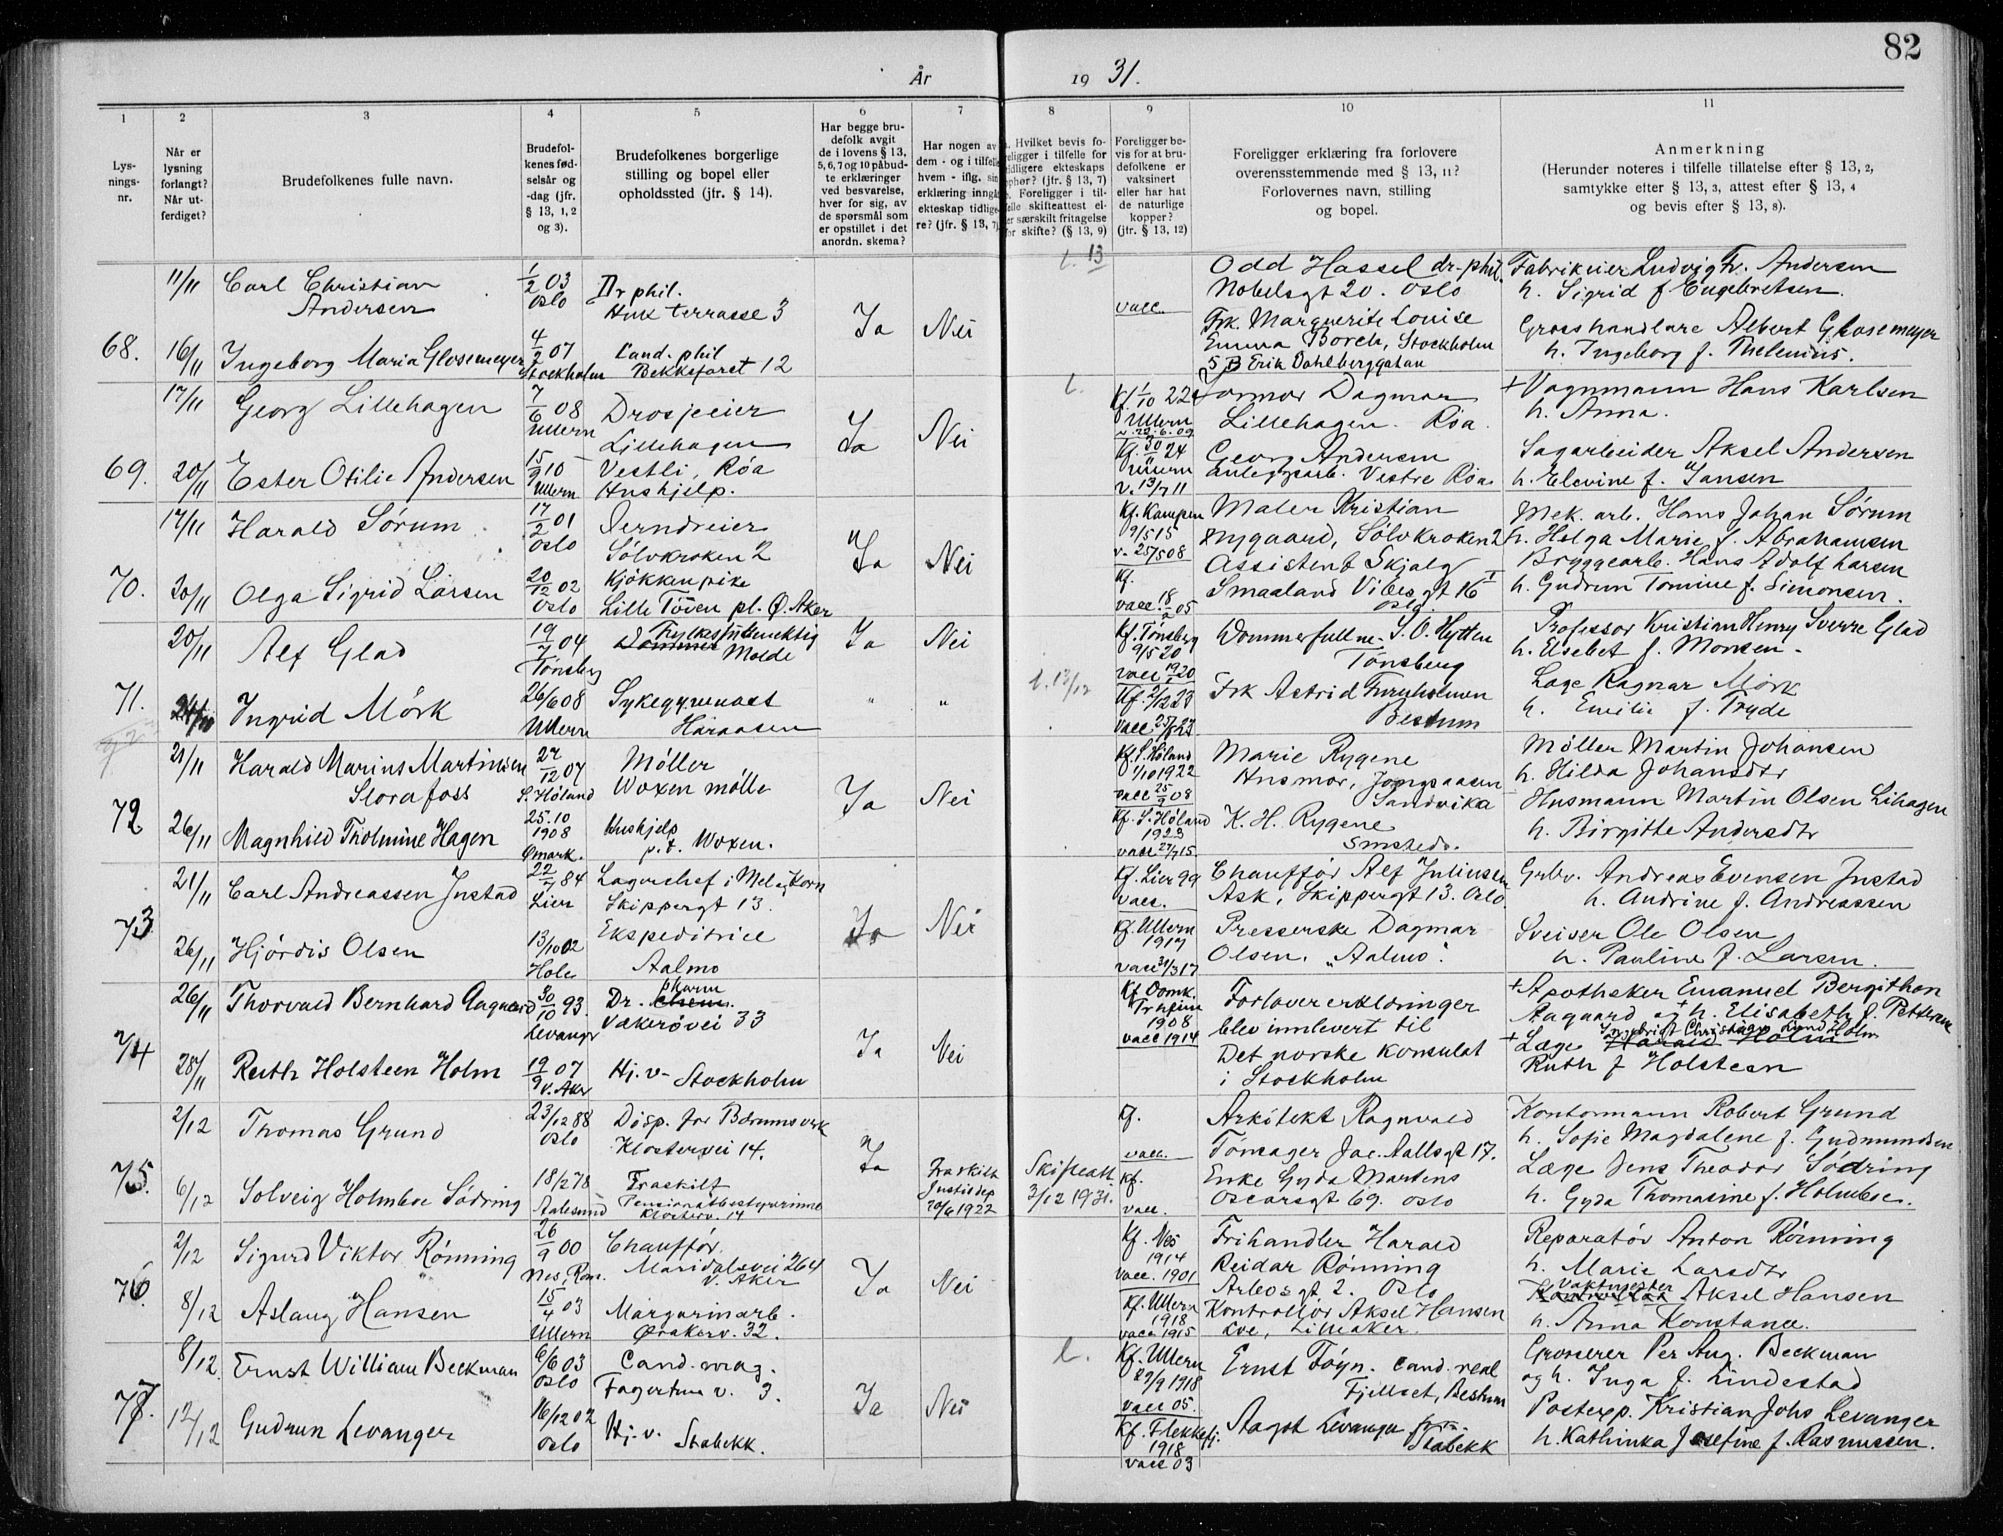 82
År 1931.
1 2 3 4 5 6 7 8 9 10 11
Lys-
nings-
nr.
Når er
lysning
forlangt?
Når ut-
ferdiget?
Brudefolkenes fulle navn.
Brudefol-
kenes fød-
selsår og
-dag (jfr.
§ 13, 1, 2
og 3).
Brudefolkenes borgerlige
stilling og bopel eller
opholdssted (jfr. § 14).
Har begge bru-
defolk avgit
de i lovens § 13,
5, 6, 7 og 10 påbud-
te erklæringer
ved besvarelse,
hver for sig, av
de spørsmål som
er opstillet i det
anordn. skema?
Har nogen av
dem - og i tilfelle
hvem - iflg. sin
erklæring inngå
ekteskap tidlige-
re? (jfr. § 13, 7)
Hvilket bevis fo-
religger i tilfelle for
tidligere ekteskaps
ophør? (jfr. § 13, 7)
Foreligger i til-
felle skifteattest el-
er særskilt fritagelse
for skifte? (§ 13, 9)
Foreligger be-
vis for at bru-
defolkene er
vaksinert
eller har hat
de naturlige
kopper?
(jfr. § 13, 12)
Foreligger erklæring fra forlovere
overensstemmende med § 13, 11?
Forlovernes navn, stilling
og bopel.
Anmerkning
(Herunder noteres i tilfelle tillatelse efter § 13, 2,
samtykke efter § 13, 3, attest efter § 13, 4
og bevis efter § 13, 8).
68.
11/11 Carl Christian
Andersen
1/2 03
Oslo
Dr phil.
Huk terrasse 3
Ja Nei
l. 13
vacc.
Odd Hassel dr. phil.
Nobelsgt 20. Oslo
Fabrikeier Ludvig Fr. Andersen
h. Sigrid f Engebretsen.
16/11 Ingeborg Maria Glosemeyer
4/2 07
Stockholm
Cand. phil
Bekkefaret 12
Frk. Marguerite Louise
Emma Borch, Stockholm
5 B Erik Dahlberggatan
Grosshandlare Albert Glosemeyer
h. Ingeborg f. Thelenius.
69.
17/11 Georg Lillehagen
7/6 08
Ullern
Drosjeeier
Lillehagen
Ja Nei
l.
Kf. 1/10 22
Ullern
v. 20.6.09
Gormor Dagmar
Lillehagen. Röa.
+ Vognmann Hans Karlsen
h. Anna.
20/11 Ester Otilie Andersen
15/9 10
Ullern
Vestli, Röa
Hushjelp.
Kf. 30/11 24
Ullern
v. 13/7 11
Georg Andersen
anleggsarb. Vestre Röa.
Sagarbeider Aksel Andersen
h. Elevine f. Jansen
70.
17/11 Harald Sörum
17/2 01
Oslo
Jerndreier
Sölvkroken 2
Ja Nei
Kf. Kampen
9/5 15
v. 25/5 08
Maler Kristian
Nygaard, Sölvkroken 2
Mek. arb. Hans Johan Sörum
h. Helga Marie f. Abrahamsen
20/11 Olga Sigrid Larsen
20/12 02
Oslo
Kjökkenpike
Lille Töien pl. Ø. Aker
Kf.
vacc. 18/2 05
Assistent Skjalg
Smaaland Vibesgt 16 I
Oslo
Bryggearb. Hans Adolf Larsen
h. Gudrun Tomine f. Simonsen.
71.
20/11 Alf Glad
19/7 04
Tönsberg
Fylkesfullmektig
Dommer Molde
Ja Nei
Kf. Tönsberg
9/5 20
vacc 19/1 20
Dommerfullm. S. O. Hytten
Tönsberg
Professor Kristian Henry Sverre Glad
h. Elsebet f. Monsen.
24/11 Ingrid Mörk
26/6 08
Ullern
Sykegymnast
Haraasen
" "
l. 12/12
Kf. 2/12 23
vacc 25/5 23
Frk Astrid Furuholmen
Bestum
Læge Ragnar Mörk
h. Emilie f. Tryde
72
21/11 Harald Marius Martinsen
Slorafoss
27/12 07
S. Höland
Möller
Woxen mölle
Ja Nei
Kf. S. Höland
1/10 1922
vacc 25/9 08
Marie Rygene
Husmor, Jongsaasen
Sandvika
Möller Martin Johansen
h. Hilda Johansdtr
26/11 Magnhild Tholmine Hagen
25.10
1908
Ømark.
Hushjelp
p. t. Woxen.
Kf. S. Höland
1923
vacc 27/7 15.
K. H. Rygene
Smsteds.
Husmann Martin Olsen Lihagen
h. Birgitte Andersdtr
73
21/11 Carl Andreassen Justad
22/7 84
Lier
Lagerchef i Mel og Korn
Skippergt 13.
Ja Nei
Kf. Lier 99
vacc.
Chauffør Alf Juliussen
Ask, Skippergt 13. Oslo.
Grbr. Andreas Evensen Justad
h. Andrine f. Andreassen
26/11 Hjördis Olsen
13/10 02
Hole
Ekspeditrice
Aalmo
Kf. Ullern
1917
vacc 31/3 17
Presserske Dagmar
Olsen, "Aalmo".
Sveiser Ole Olsen
h. Pauline f. Larsen.
74
26/11 Thorvald Bernhard Aagaard
30/10 93
Levanger
Dr. pharm chem.
Vækerövei 33
Ja Nei
Kf. Domk.
Trhjem
1908
vacc 1914
Forlovererklæringer
blev innlevert til
Det norske konsulat
i Stockholm
+ Apotheker Emanuel Bergithon
Aagaard og + h. Elisabeth f. Petersen
28/11 Ruth Holsteen Holm
19/9 07
V. Aker
Hj. v. Stockholm
+ Læge Ingebrigt Christian Lund Holm
Harald Holm
Ruth f Holsteen
75.
2/12 Thomas Grund
23/12 88
Oslo
Disp. for Bærumsverk
Klostervei 14.
Ja
Kf.
vacc.
Arkitekt Ragnvald
Tönsager Jac. Aallsgt 17.
Kontormann Robert Grund
h. Sofie Magdalene f. Gudmundsen
6/12 Solveig Holmboe Södring
18/2 78
Aalesund
Fraskilt
Pensionatbestyrerinne
Klosterv. 14
Fraskilt
Justisdep
20/6 1922
Skifteatt.
3/12 1931.
Kf.
vacc.
Enke Gyda Martens
Oscarsgt 69. Oslo
Læge Jens Theodor Södring
h. Gyda Thomasine f. Holmboe.
76.
2/12 Sigurd Viktor Rönning
26/9 00
Nes, Rom.
Chauffør.
Maridalsvei 264
V. Aker
Ja Nei
Kf. Nes
1914
vacc. 1901
Frihandler Harald
Reidar Rönning
Arbosgt 2. Oslo
Reparatör Anton Rönning
h. Marie Larsdtr
8/12 Aslaug Hansen
15/4 03
Ullern
Margarinarb.
Ørakerv. 32.
Kf. Ullern
1918
vacc 1915
Kontrollör Aksel Hansen
Lve, Lilleaker.
Vaktmester
Kontrollör Aksel Hansen
h. Anna Konstanse.
77.
8/12 Ernst William Beckman
6/6 03
Oslo
Cand. mag.
Fagertun v. 3.
Ja Nei
l.
Kf. Ullern
29/9 1918
vacc 05.
Ernst Föyn. Cand. real
Fjellset, Bestum
Grosserer Per Aug. Beckman
og h. Inga f. Lindestad
12/12 Gudrun Levanger
16/12 02
Oslo
Hj. v.
Stabekk.
Kf. Flekkefj.
1918
vacc 03
Aagot Levanger
Stabekk
Postexp. Kristian Johs Levanger
h. Kathinka Josefine f. Rasmussen.